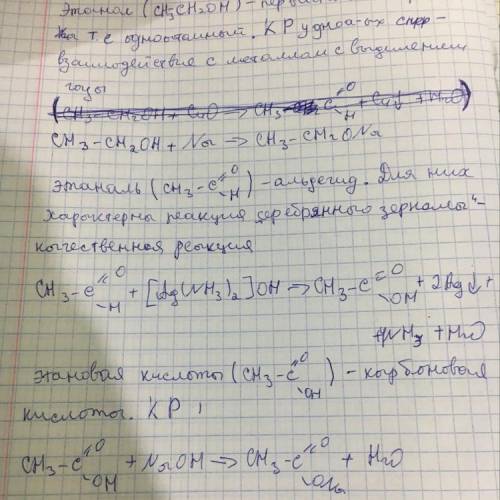 Этанол (CH₃CH₂OH) –
т.е одноатомный. КР одноа-ых спир-
взаимодействие с металлам с выделением
CH₃–CH₂OH + CuO → CH₃–C=O –H + Cu↓ + H₂O)
CH₃–CH₂OH + Na → CH₃–CH₂ONa
этаналь (CH₃–C=O –H) – альдегид. Для них
характерны реакция "серебрянного зеркала"–
качественная реакция
CH₃–C=O –H + [Ag(NH₃)₂]OH → CH₃–C=O –OH + 2Ag↓ +
+NH₃ + H₂O
этановая кислота (CH₃–C=O –OH) – карбоновая
кислота. КР
CH₃–C=O –OH + NaOH → CH₃–C=O –ONa + H₂O